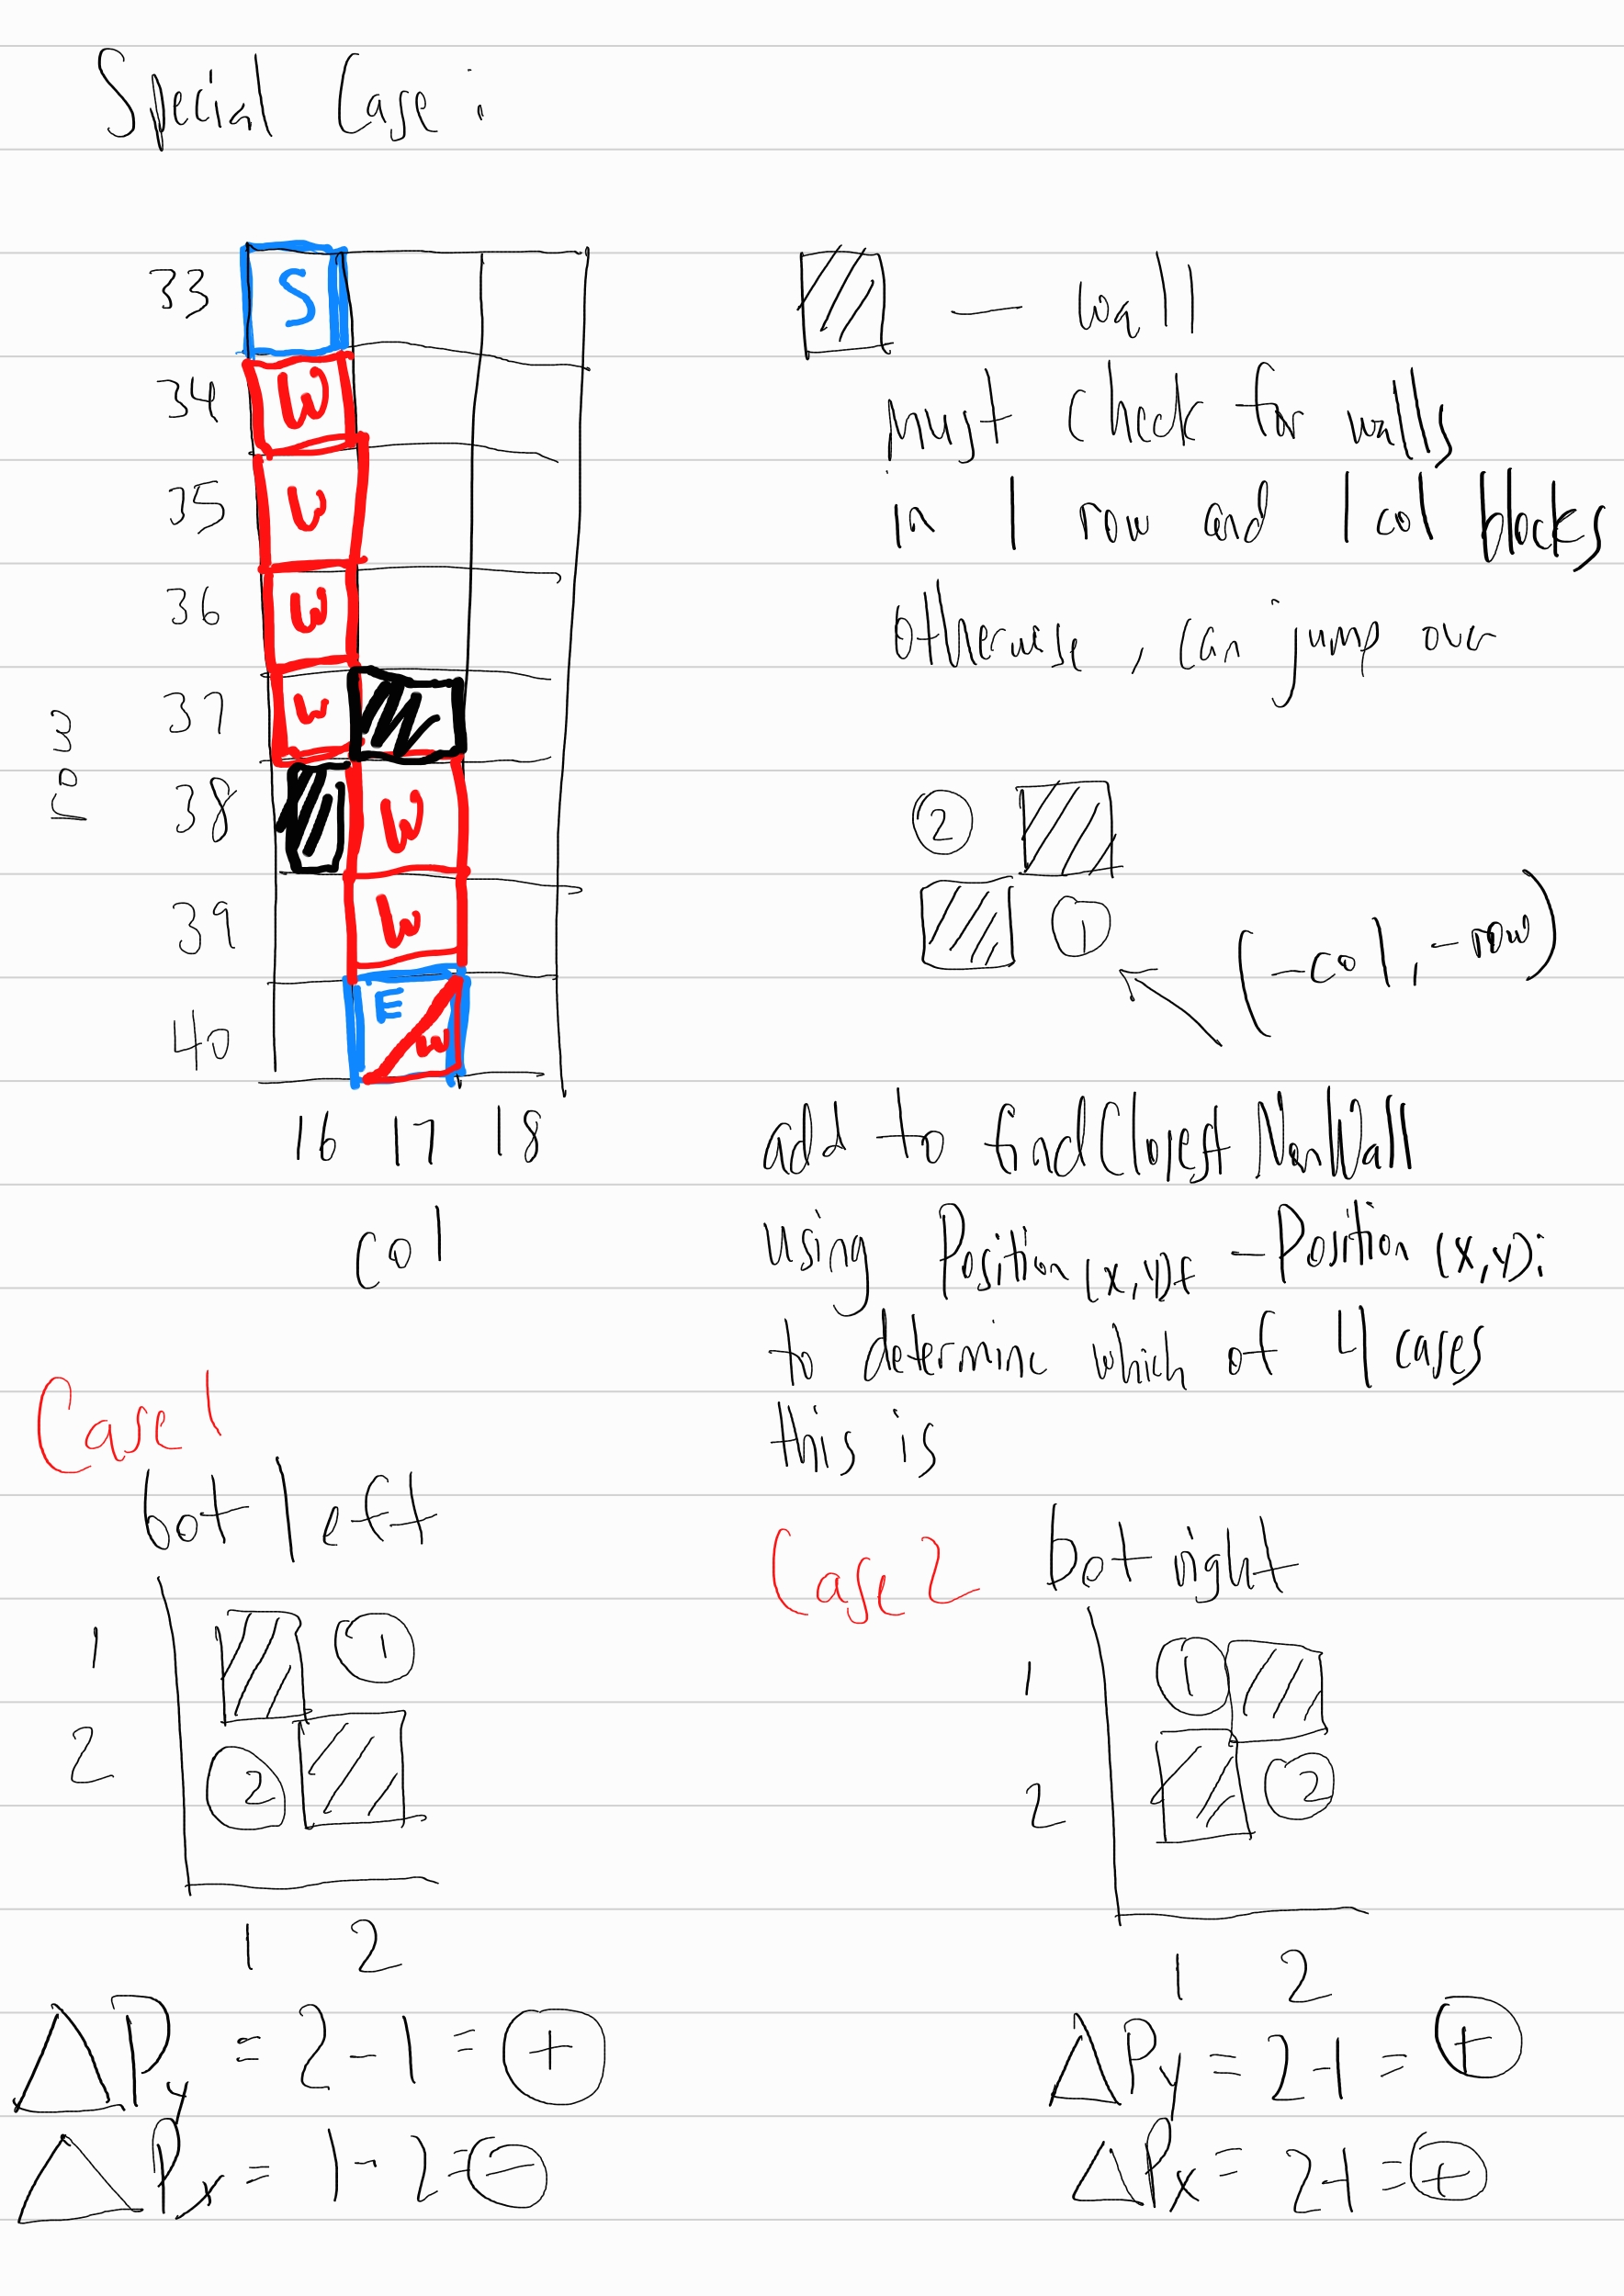 Special Case :
33 S
34 W
35 W
36 W
37 W
38 W
39 W
40 E W
row
16 17 18
col
— wall
must check for walls
in 1 row and 1 col blocks
otherwise, can jump over
2
1
(-col, -row)
add to findClosestNonWall
using Position (x,y)f - Position (x,y)i
to determine which of 4 cases
this is
Case 1
bot left
1 1
2 2
1 2
ΔPy = 2 - 1 = +
ΔPx = 1 - 2 = -
Case 2 bot right
1 1
2 2
1 2
ΔPy = 2-1 = +
ΔPx = 2-1 = +